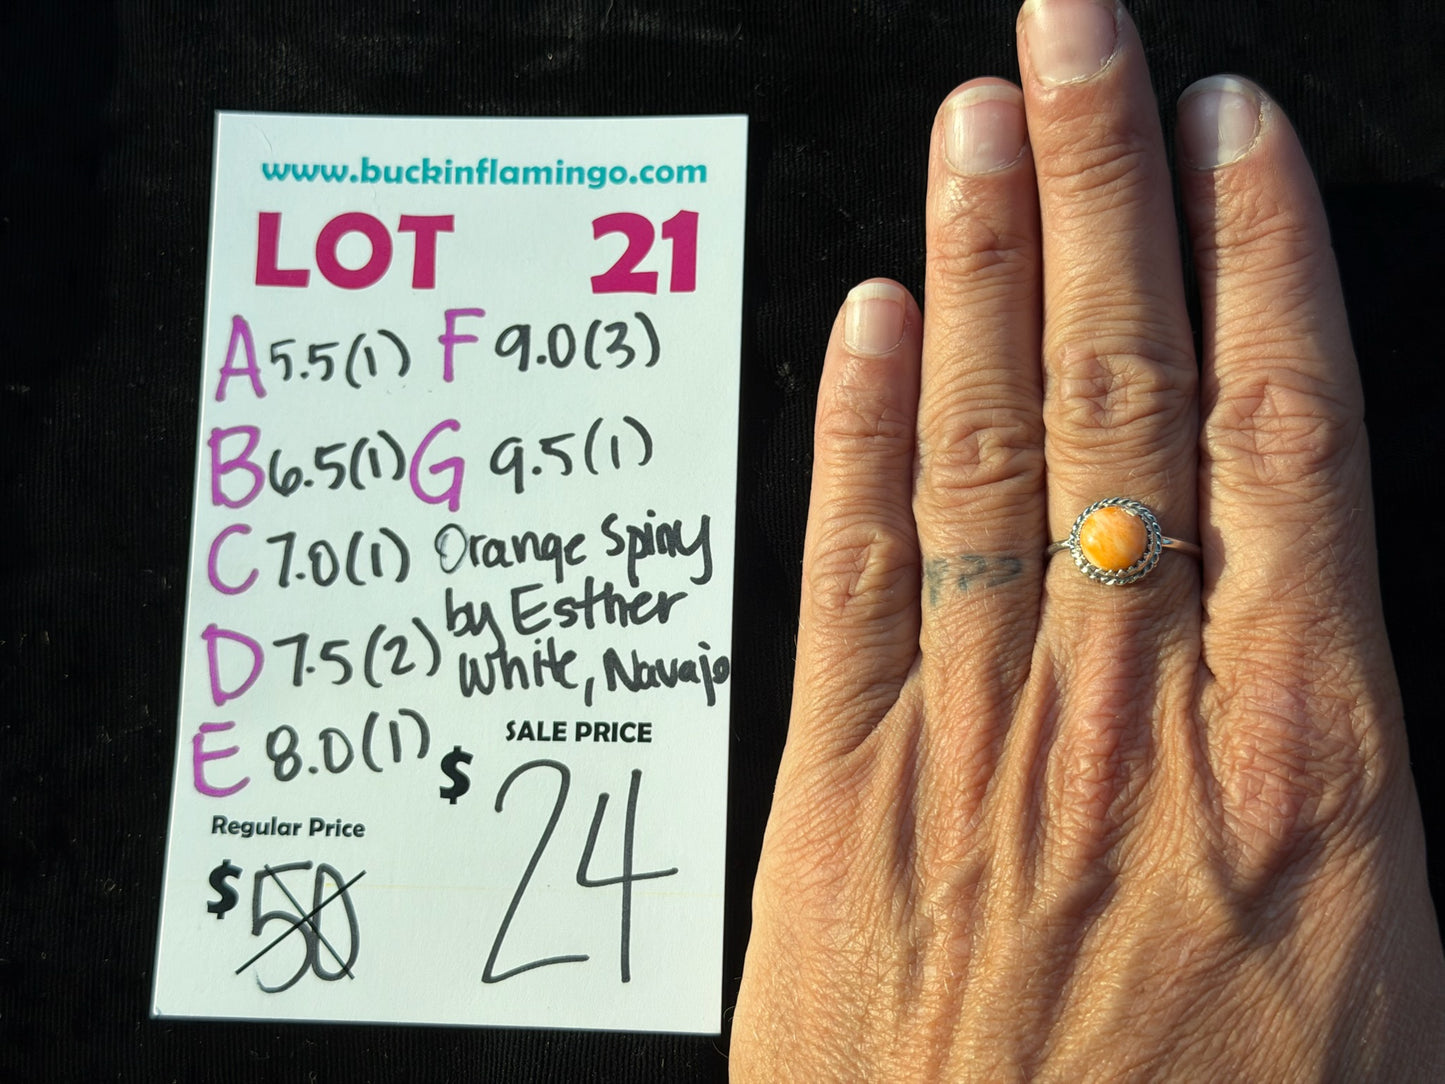 www.buckinflamingo.com
LOT 21
A 5.5(1) F 9.0(3)
B 6.5(1) G 9.5(1)
C 7.0(1) Orange Spiny
D 7.5(2) by Esther
White, Navajo
E 8.0(1)
SALE PRICE
$ 24
Regular Price
$ 50